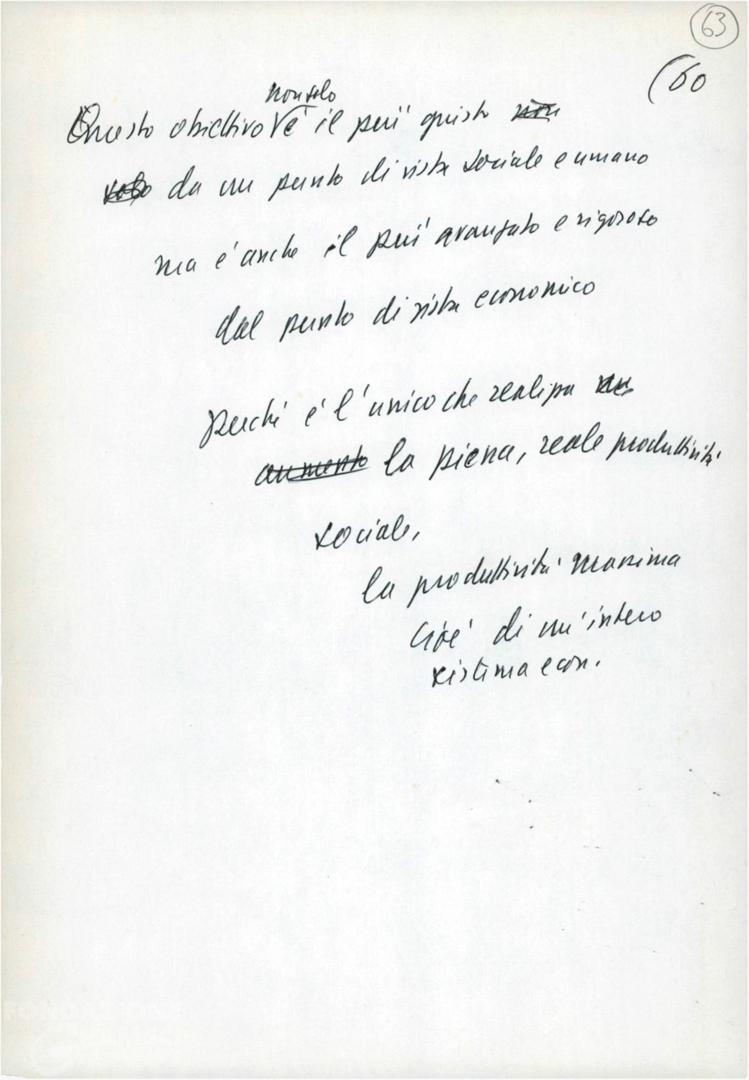 63
(60
non solo
Questo obiettivo è il più giusto non
solo da un punto di vista sociale e umano
ma è anche il più avanzato e rigoroso
dal punto di vista economico
perché è l'unico che realizza un
aumento la piena, reale produttività
sociale,
la produttività massima
cioè di un'intero
sistema econ.
FONDAZIONE